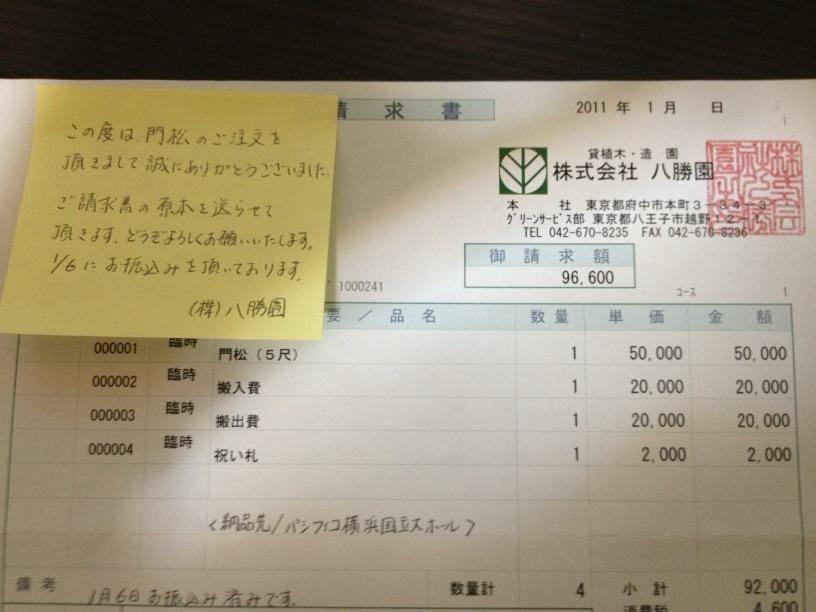 この度は、門松のご注文を
頂きまして誠にありがとうございました。
ご請求書の原本を送らせて
頂きます。どうぞよろしくお願いいたします。
1/6にお振込みを頂いております。
(株)八勝園
請求書
2011 年 1 月 日
1
貸植木・造園
株式会社 八勝園
本 社 東京都府中市本町3-34-3
グリーンサービス部 東京都八王子市越野12-1
TEL 042-670-8235 FAX 042-670-8236
御請求額
96,600
1000241
コース 1
要 / 品名 数量 単価 金額
000001 臨時 門松(5尺) 1 50,000 50,000
000002 臨時 搬入費 1 20,000 20,000
000003 臨時 搬出費 1 20,000 20,000
000004 臨時 祝い札 1 2,000 2,000
<納品先/パシフィコ横浜国立大ホール>
備考 1月6日お振込み済みです。
数量計 4 小計 92,000
消費税 4,600